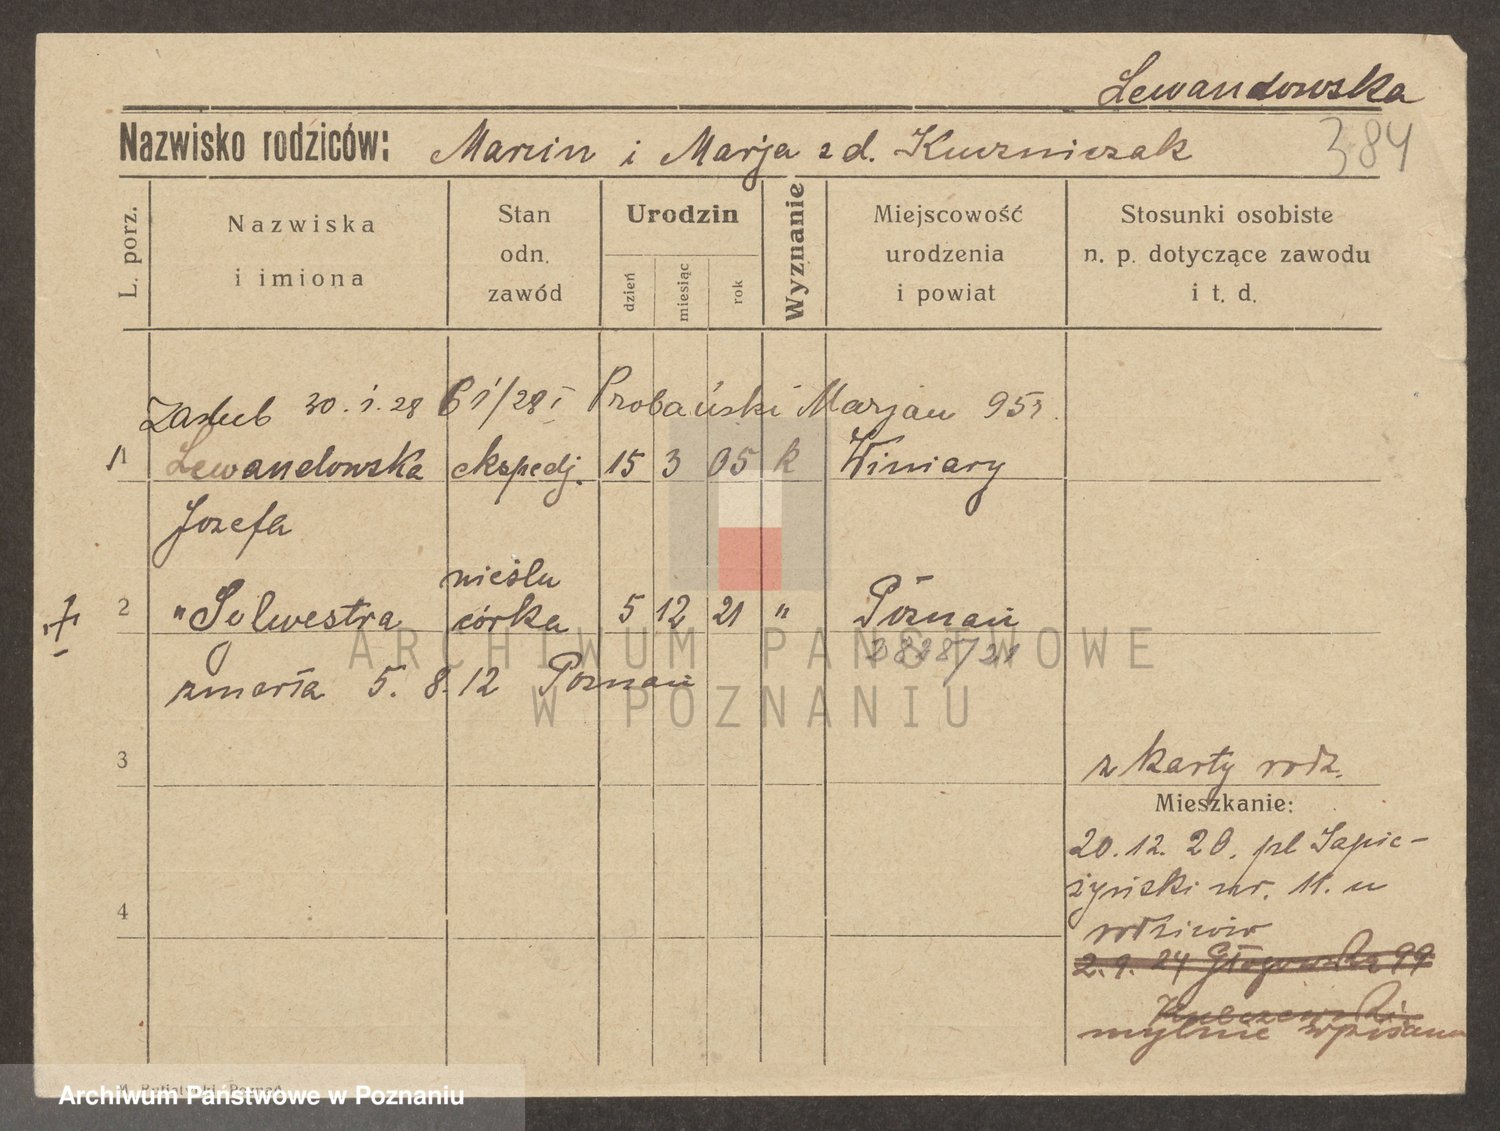 Lewandowska
Nazwisko rodziców: Marcin i Marja z d. Kuczniczak
384
L. porz.
Nazwiska
i imiona
Stan
odn.
zawód
Urodzin
dzień
miesiąc
rok
Wyznanie
Miejscowość
urodzenia
i powiat
Stosunki osobiste
n. p. dotyczące zawodu
i t. d.
Zaślub 30. 1. 28 61/28 I Probański Marjan 95r.
1 Lewandowska ekspedj. 15 3 05 k Winiary
Józefa
nieślu
2 " Sylwestra córka 5 12 21 " Poznań
3828/21
zmarła 5. 8. 12 Poznań
3
z karty rodz.
Mieszkanie:
20. 12. 20. pl Sapie-
żyński nr. 11. u
4
rodziców
2. 9. 24 Głogowska 99
mylnie wpisano
ARCHIWUM PAŃSTWOWE
W POZNANIU
Archiwum Państwowe w Poznaniu